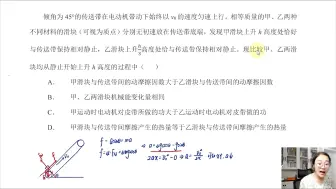 倾角为45°的传送带在电动机带动下始终以v₀的速度匀速上行，相等质量的甲、乙两种
不同材料的滑块（可视为质点）分别无初速放在传送带底端，发现甲滑块上升h高度处恰好
与传送带保持相对静止，乙滑块上升h/2高度处恰与传送带保持相对静止。现比较甲、乙两滑
块均从静止开始上升h高度的过程中（　　）
A. 甲滑块与传送带间的动摩擦因数大于乙滑块与传送带间的动摩擦因数
B. 甲、乙两滑块机械能变化量相同
C. 甲运动时电动机对皮带所做的功大于乙运动时电动机对皮带做的功
D. 甲滑块与传送带间摩擦产生的热量等于乙滑块与传送带间摩擦产生的热量